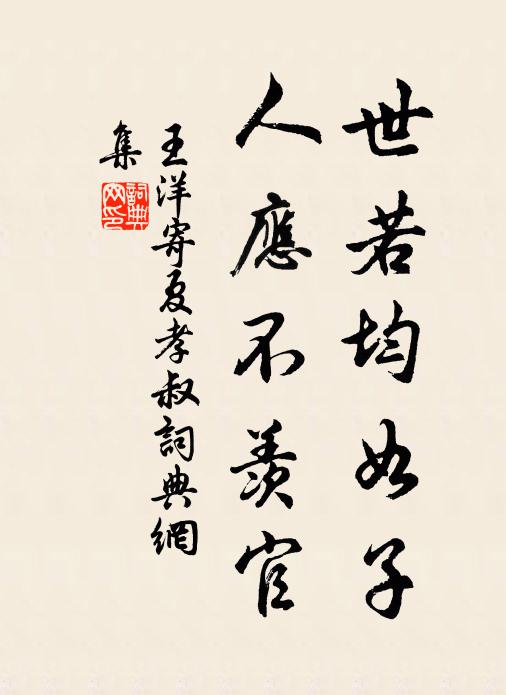 世若均如子
人應不羨官
王洋寄夏孝叔詞典網
集
詞典
网印